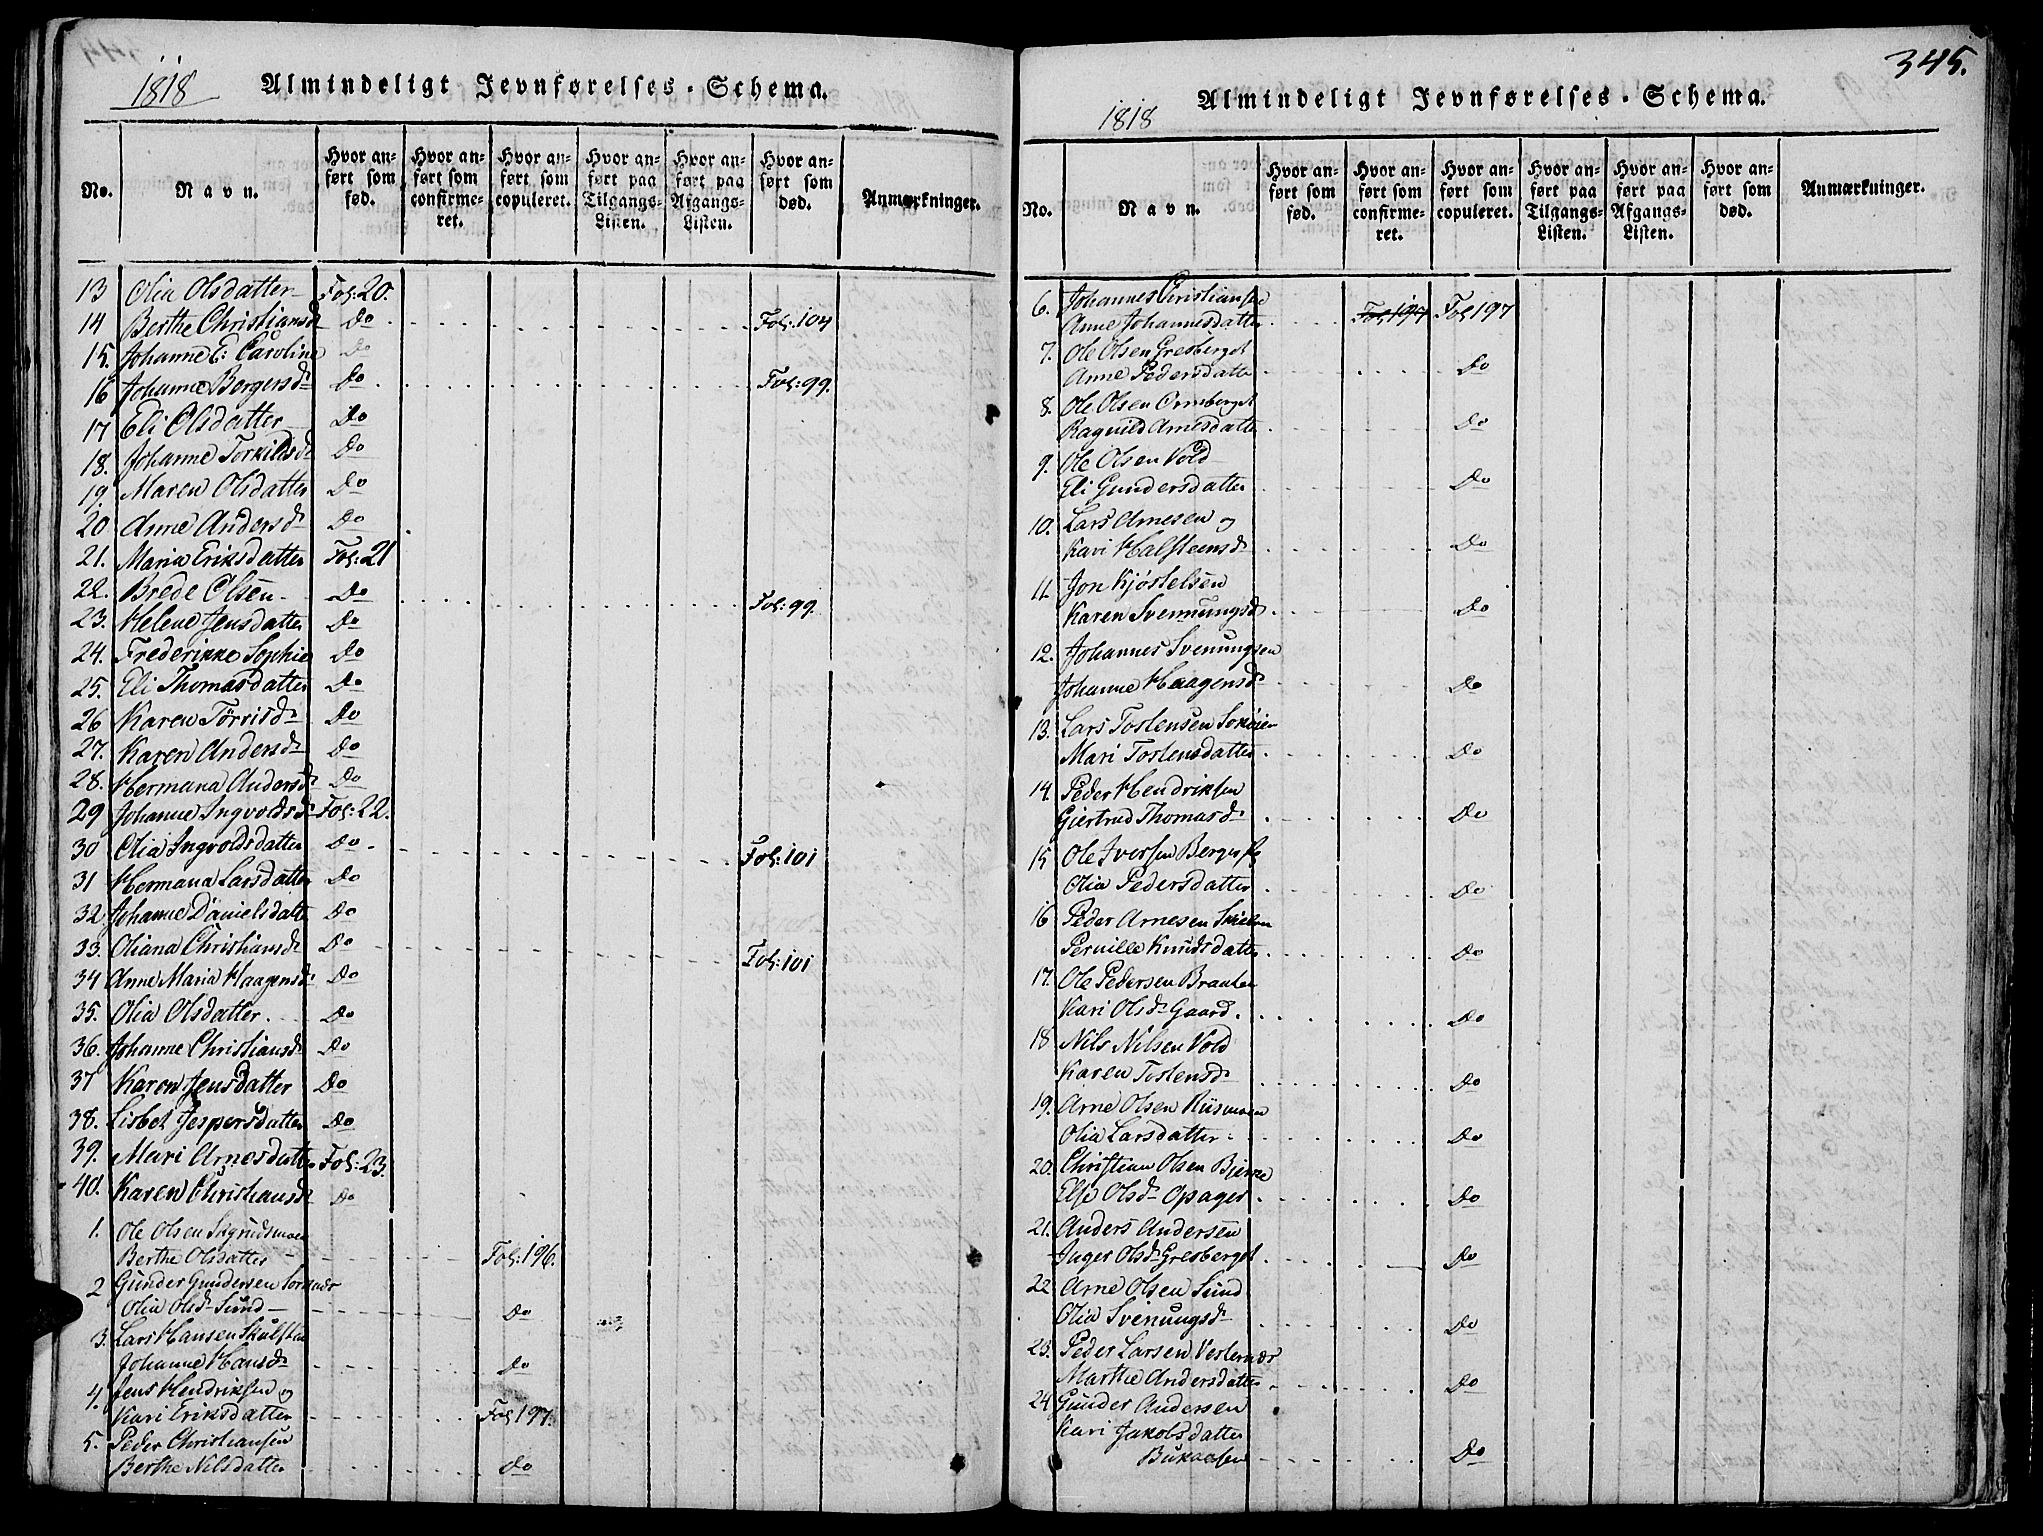 1818 Almindeligt Jevnførelses-Schema.
No. Navn. Hvor anført som fød. Hvor anført som confirmeret. Hvor anført som copuleret. Hvor anført paa Tilgangs-Listen. Hvor anført paa Afgangs-Listen. Hvor anført som død. Anmærkninger.
13 Olia Olsdatter Fol: 20.
14 Berthe Christiansd Do Fol: 104
15. Johanne E: Caroline Do
16 Johanne Borgersd Do Fol: 99.
17 Eli Olsdatter Do
18. Johanne Torkildsd Do
19. Maren Olsdatter Do
20 Anne Andersd Do
21. Maria Eriksdatter Fol: 21
22. Brede Olsen Do Fol: 99.
23. Helene Jensdatter Do
24. Frederikke Sophie Do
25. Eli Thomasdatter Do
26 Karen Törrisd Do
27. Karen Andersd Do
28. Hermana Andersd Do
29 Johanne Ingvoldsd Fol: 22.
30 Olia Ingvoldsdatter Do Fol: 101
31 Hermana Larsdatter Do
32 Johanne Danielsdatt Do
33. Oliana Christiansd Do Fol: 101
34 Anne Maria Haagensd Do
35. Olia Olsdatter. Do
36. Johanne Christiansd Do
37 Karen Jensdatter Do
38. Lisbet Jespersdatter Do
39. Mari Arnesdatter Fol: 23.
40. Karen Christiansd Do
1. Ole Olsen Sigrudsmoen
Berthe Olsdatter Fol: 196.
2 Gunder Gundersen Sorknær
Olia Olsd Sund Do
3. Lars Hansen Skulstad
Johanne Hansd Do
4. Jens Hendriksen og
Kari Eriksdatter Fol 197.
5. Peder Christiansen
Berthe Nilsdatter Do
345.
1818 Almindeligt Jevnførelses-Schema.
No. Navn. Hvor anført som fød. Hvor anført som confirmeret. Hvor anført som copuleret. Hvor anført paa Tilgangs-Listen. Hvor anført paa Afgangs-Listen. Hvor anført som død. Anmærkninger.
6. Johannes Christiansen
Anne Johannesdatter Fol 197 Fol 197
7. Ole Olsen Gresberget
Anne Pedersdatte Do
8. Ole Olsen Ornsberget
Ragnild Arnesdatte Do
9. Ole Olsen Vold
Eli Gundersdatter Do
10. Lars Arnesen og
Kari Halsteensd Do
11. Jon Kjöstelsen
Karen Svennungsd Do
12. Johannes Svenungsen
Johanne Haagensd Do
13. Lars Tostensen
Mari Tostensdatter Do
14. Peder Hendriksen
Giertrud Thomasd Do
15 Ole Iversen
Olia Pedersdatter Do
16 Peder Arnesen
Pernille Knudsdatter Do
17. Ole Pedersen Braaten
Kari Olsd Gaard. Do
18 Nils Nilsen Vold
Karen Tostensd Do
19. Arne Olsen Riismoen
Olia Larsdatter Do
20. Christian Olsen Bierne
Else Olsd Opager Do
21. Anders Andersen
Inger Olsd Gresberget Do
22 Arne Olsen Sund
Olia Svenungsd Do
23. Peder Larsen Vesternær
Marthe Andersdatter Do
24 Gunder Andersen
Kari Jakobsdatter
Bukaasen Do